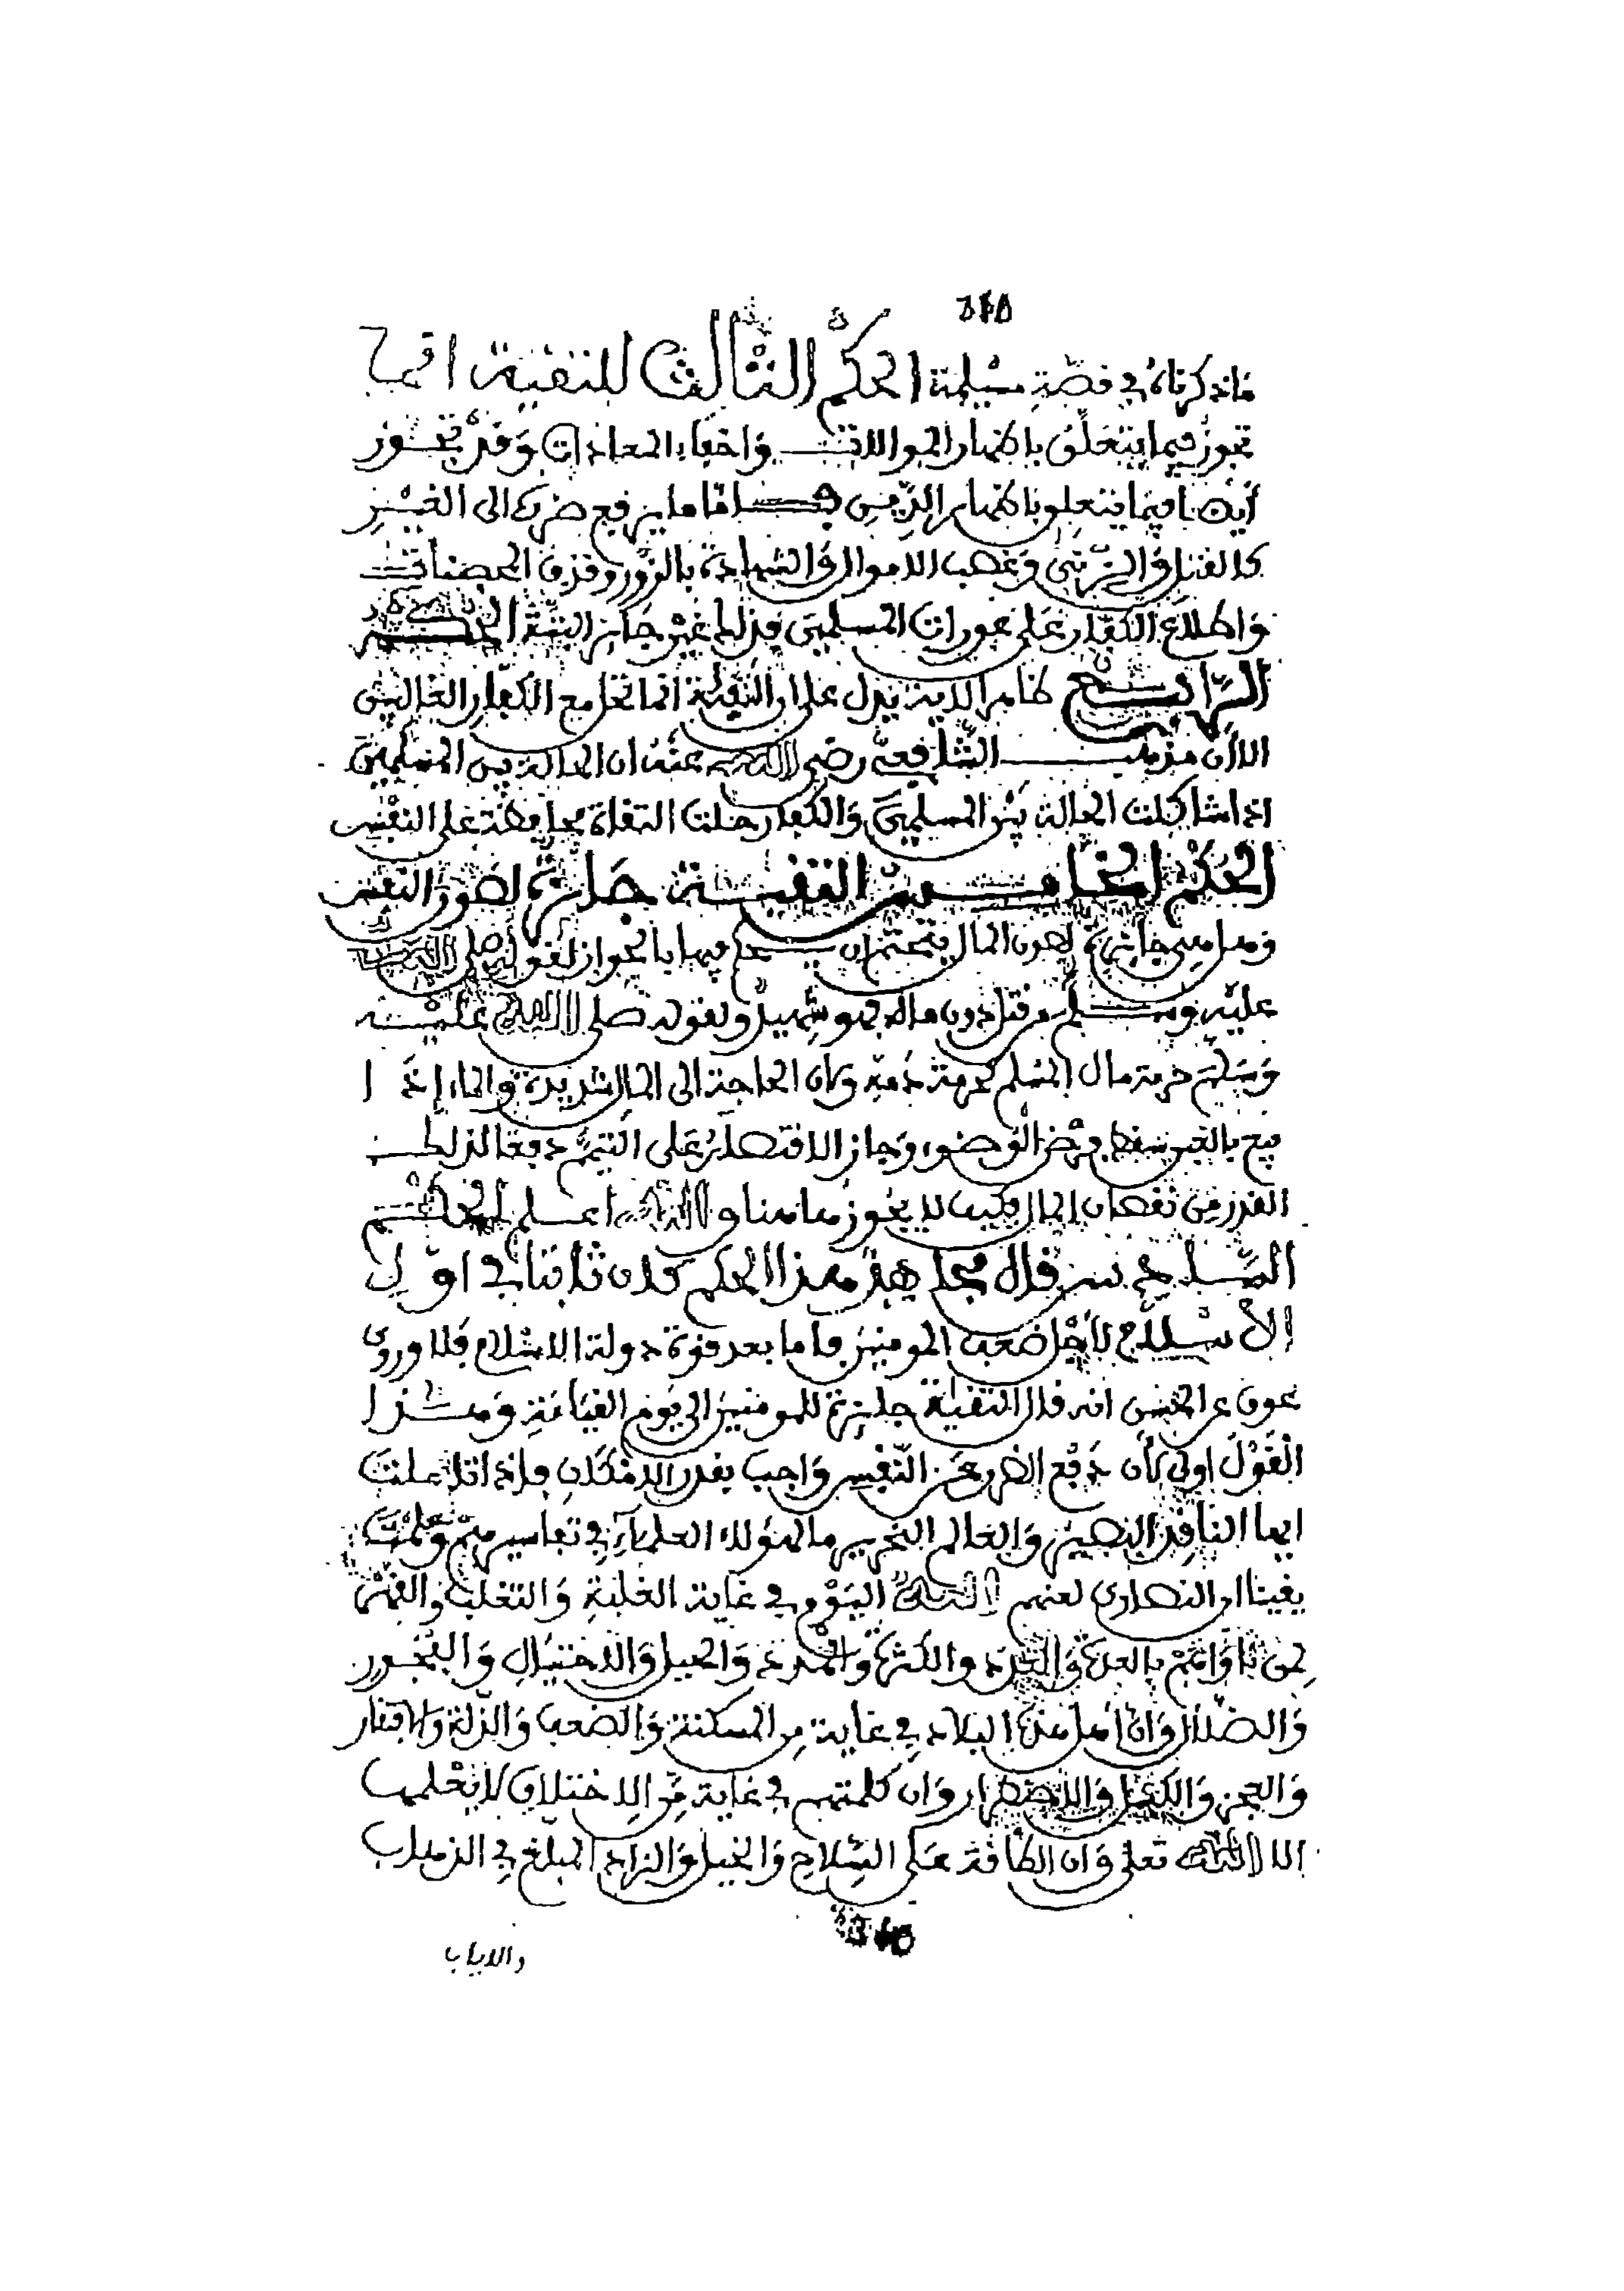 ما ذكرناه في قصة مسيلمة الحكم الثالث للتقية انما
تجوز فيما يتعلق باظهار الموالات واخفاء المعادات وقد تجوز
أيضا فيما يتعلق باظهار الدين فاما ما يرجع ضرره الى الغير
كالقتل والزنى وغصب الاموال والشهادة بالزور وقذف المحصنات
واطلاع الكفار على عورات المسلمين فذلك غير جائز البتة الحكم
الرابع ظاهر الاية يدل على ان التقية انما تحل مع الكفار الغالبين
الا أن مذهب الشافعي رضي الله عنه ان الحالة بين المسلمين
اذا شاكلت الحالة بين المسلمين والكفار حلت التقاة محافظة على النفس
الحكم الخامس التقية جائزة لصون النفس
وهل هي جائزة لصون المال يحتمل ان يحكم فيها بالجواز لقوله صلى الله
عليه وسلم من قتل دون ماله فهو شهيد ولقوله صلى الله عليه
وسلم حرمة مال المسلم كحرمة دمه ولان الحاجة الى المال شديدة والماء إذا
بيع بالغبن سقط فرض الوضوء وجاز الاقتصار على التيمم دفعا لذلك
القدر من نقصان المال فكيف لا يجوز هاهنا والله اعلم الحكم
السادس قال مجاهد هذا الحكم كان ثابتا في اول
الاسلام لأجل ضعف المومنين فاما بعد قوة دولة الاسلام فلا وروى
عوف عن الحسن انه قال التقية جائزة للمومنين الى يوم القيامة وهذا
القول اولى لأن دفع الضرر عن النفس واجب بقدر الامكان فاذا تاملت
ايها الناقد البصير والعالم النحرير ما لهؤلاء العلماء في تفاسيرهم وعلمت
يقينا ان النصارى لعنهم الله اليوم في غاية الغلبة والتغلب والقهر
لمن ناواهم بالعدة والعدد والكثرة والمدد والحيل والاحتيال والفجور
والضلال وان أهل هذه البلاد في غاية من المسكنة والضعف والذلة والافتقار
والعجز والاضطرار وان كلمتهم في غاية من الاختلاف لا يعلمها
الا الله تعلى وان الطاقة على السلاح والخيل والزاد المبلغ في الذهاب
والاياب